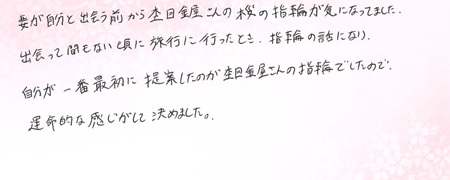 妻が自分と出会う前から杢目金屋さんの桜の指輪が気になってました.
出会って間もない頃に旅行に行ったとき、指輪の話になり、
自分が一番最初に提案したのが杢目金屋さんの指輪でしたので、
運命的な感じがして決めました。